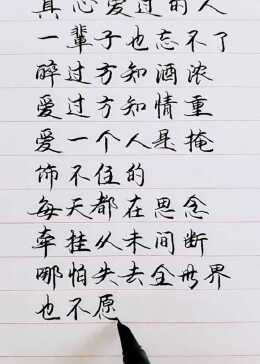 真心爱过的人
一辈子也忘不了
醉过方知酒浓
爱过方知情重
爱一个人是掩
饰不住的
每天都在思念
牵挂从未间断
哪怕失去全世界
也不愿